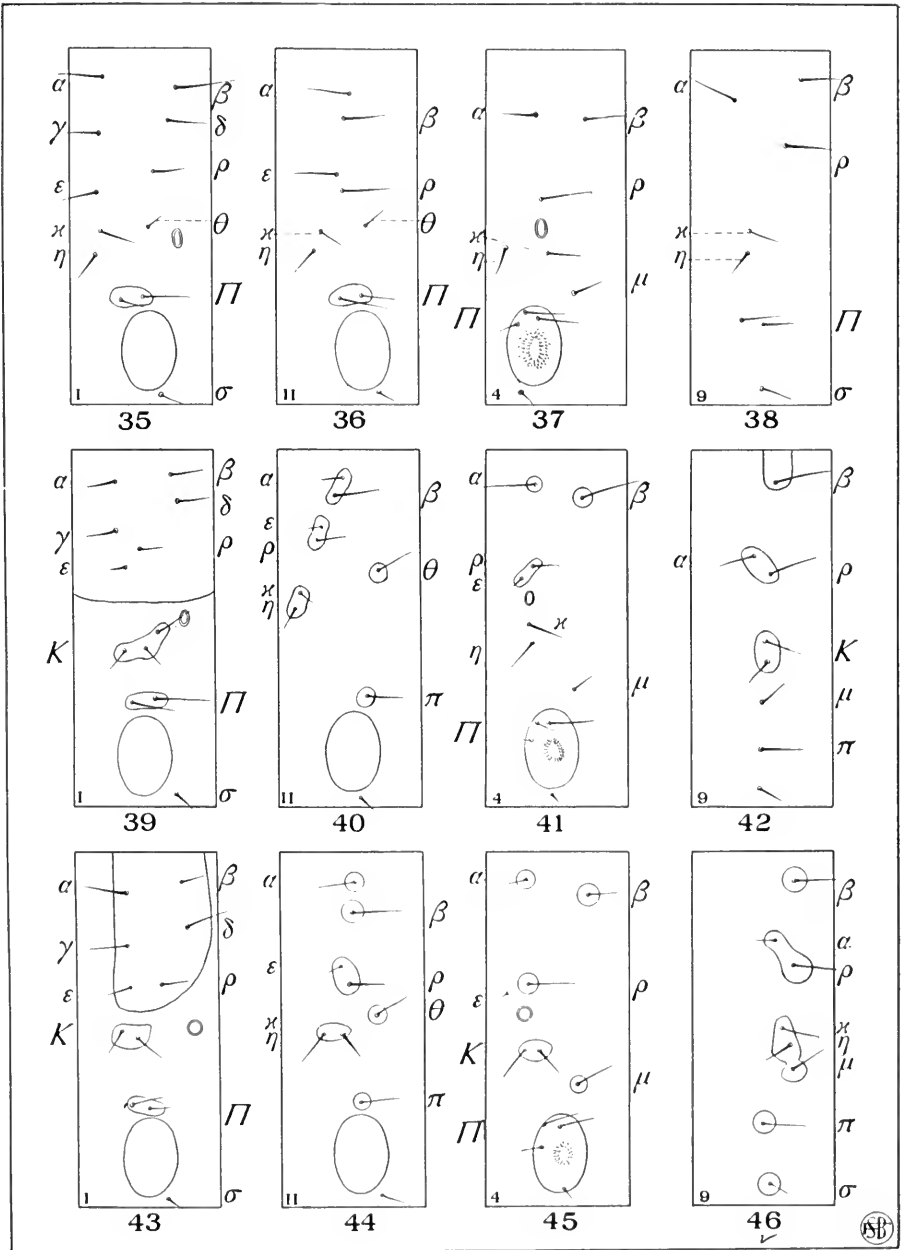 α β
γ δ
ε ρ
ϰ θ
η
Π
I σ
35
α β
ε ρ
ϰ θ
η
Π
II
36
α β
ρ
ϰ
η μ
Π
4
37
α β
ρ
ϰ
η
Π
9 σ
38
α β
δ
γ ρ
ε
K
Π
I σ
39
α β
ε
ρ θ
ϰ
η
π
II
40
α β
ρ
ε
ϰ
η
μ
Π
4
41
β
α ρ
K
μ
π
9
42
α β
γ δ
ε ρ
K
Π
I σ
43
α β
ε ρ
ϰ θ
η
π
II
44
α β
ε ρ
K
μ
Π
4
45
β
α
ρ
ϰ
η
μ
π
9 σ
46